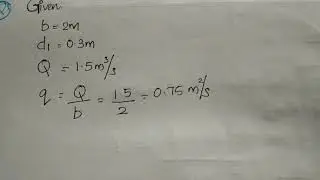 Given
b = 2m
d1 = 0.3m
Q = 1.5 m³/s
q = Q/b = 1.5/2 = 0.75 m²/s